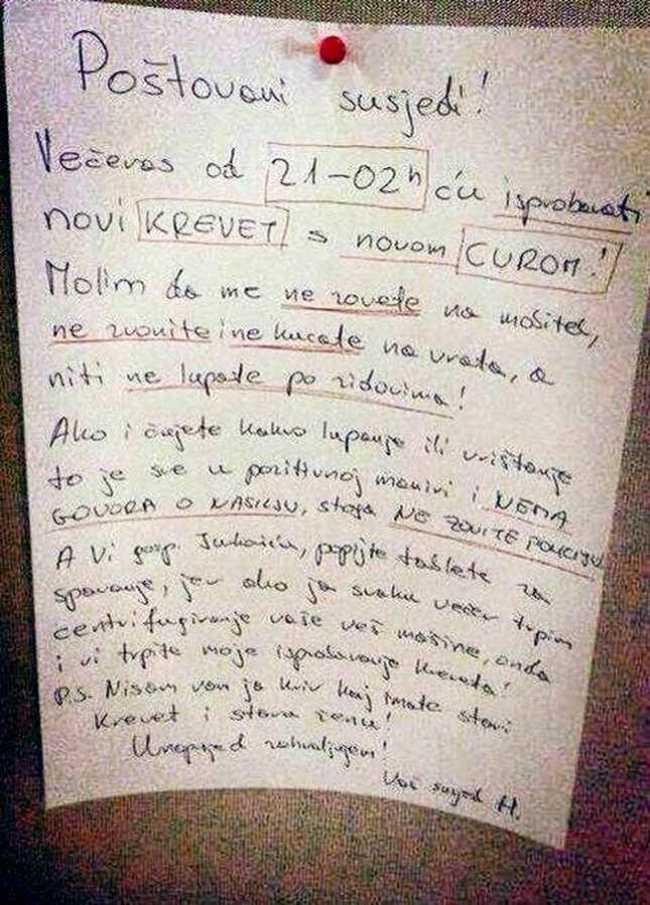 Poštovani susjedi!
Večeras od 21-02h ću isprobavati
novi KREVET s novom CUROM!
Molim da me ne zovete na mobitel,
ne zvonite i ne kucate na vrata, a
niti ne lupate po zidovima!
Ako i čujete kakvo lupanje ili vrištanje
to je sve u pozitivnoj manivi i NEMA
GOVORA O NASILJU, stoga NE ZOVITE POLICIJU
A Vi gosp. Jukoviću, popijte tablete za
spavanje, jer ako ja svaku večer trpim
centrifugiranje vaše veš mašine, onda
i vi trpite moje isprobavanje kreveta!
P.S. Nisam van ja kriv kaj imate stari
krevet i staru ženu!
Unaprijed zahvaljujem!
Vaš susjed H.